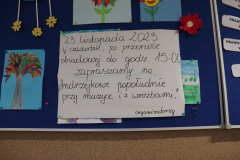 23 listopada 2023
w czwartek, po przerwie
obiadowej do godz. 15.00
zapraszamy na
Andrzejkowe popołudnie
przy muzyce i z wróżbami!
organizatorzy